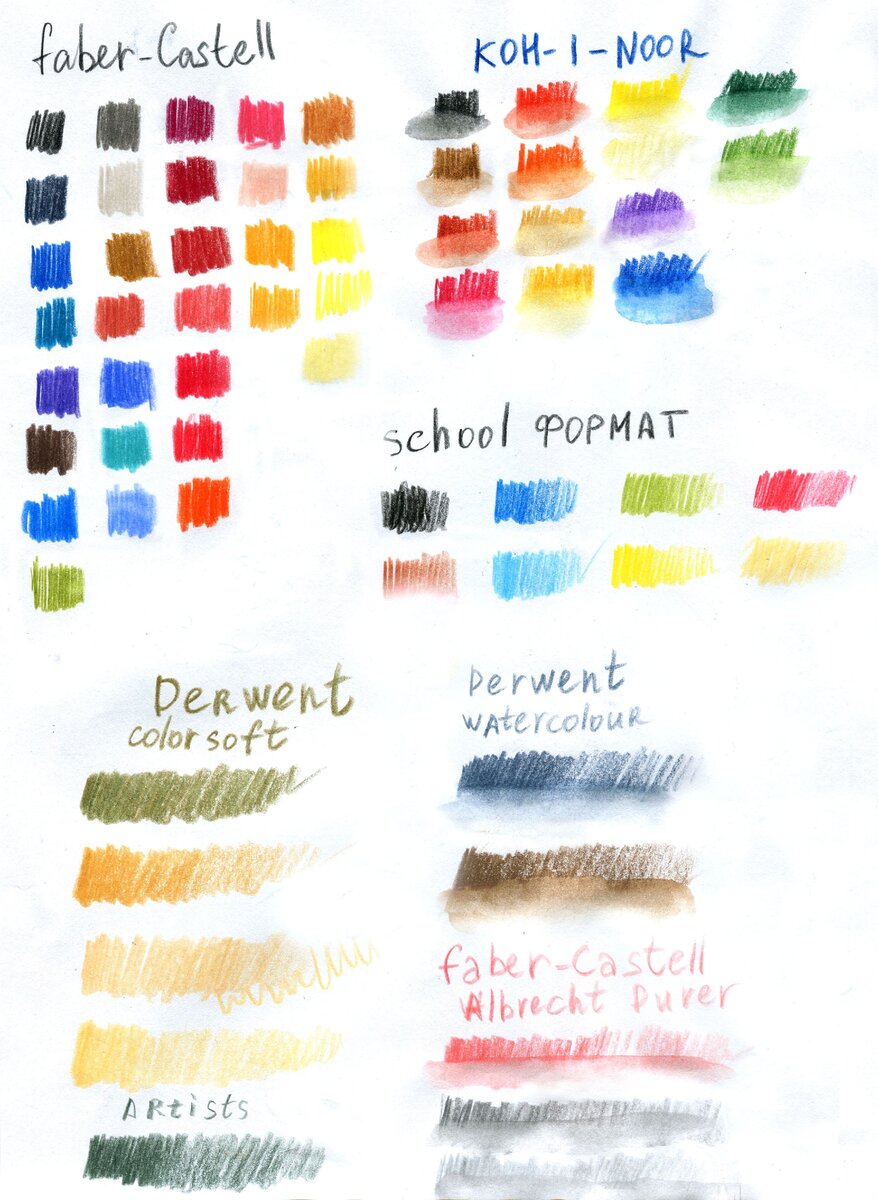 faber-Castell
KOH-I-NOOR
school ФОРМАТ
Derwent
colorsoft
Derwent
watercolour
faber-Castell
Albrecht Durer
Artists